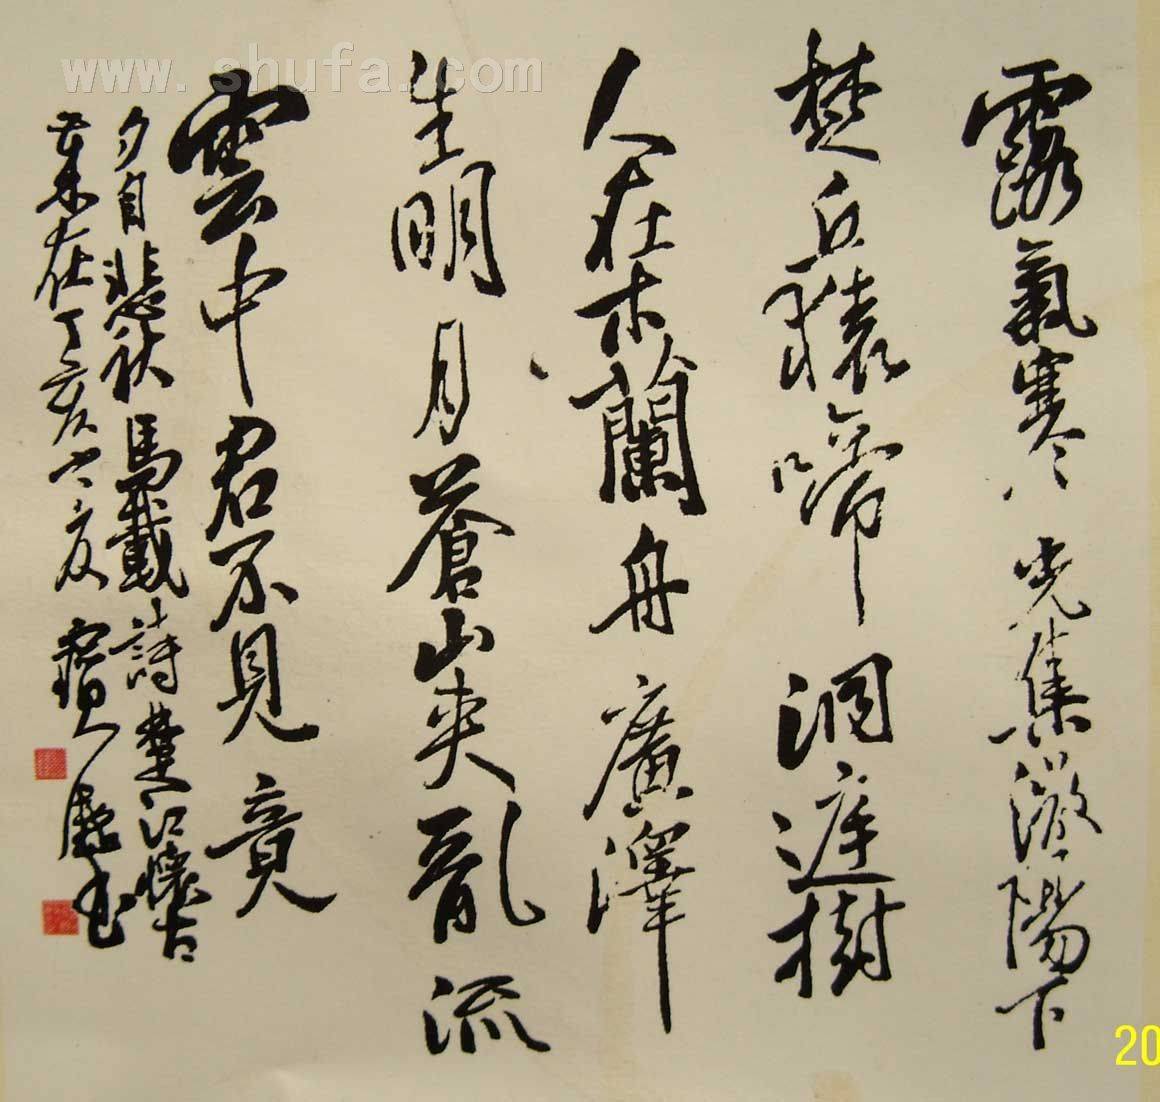 www.shufa.com
露氣寒光集微陽下
楚丘猿啼洞庭樹
人在木蘭舟廣澤
生明月蒼山夾亂流
雲中君不見竟
夕自悲秋馬戴詩楚江懷古
在丁亥之夏寶書
20